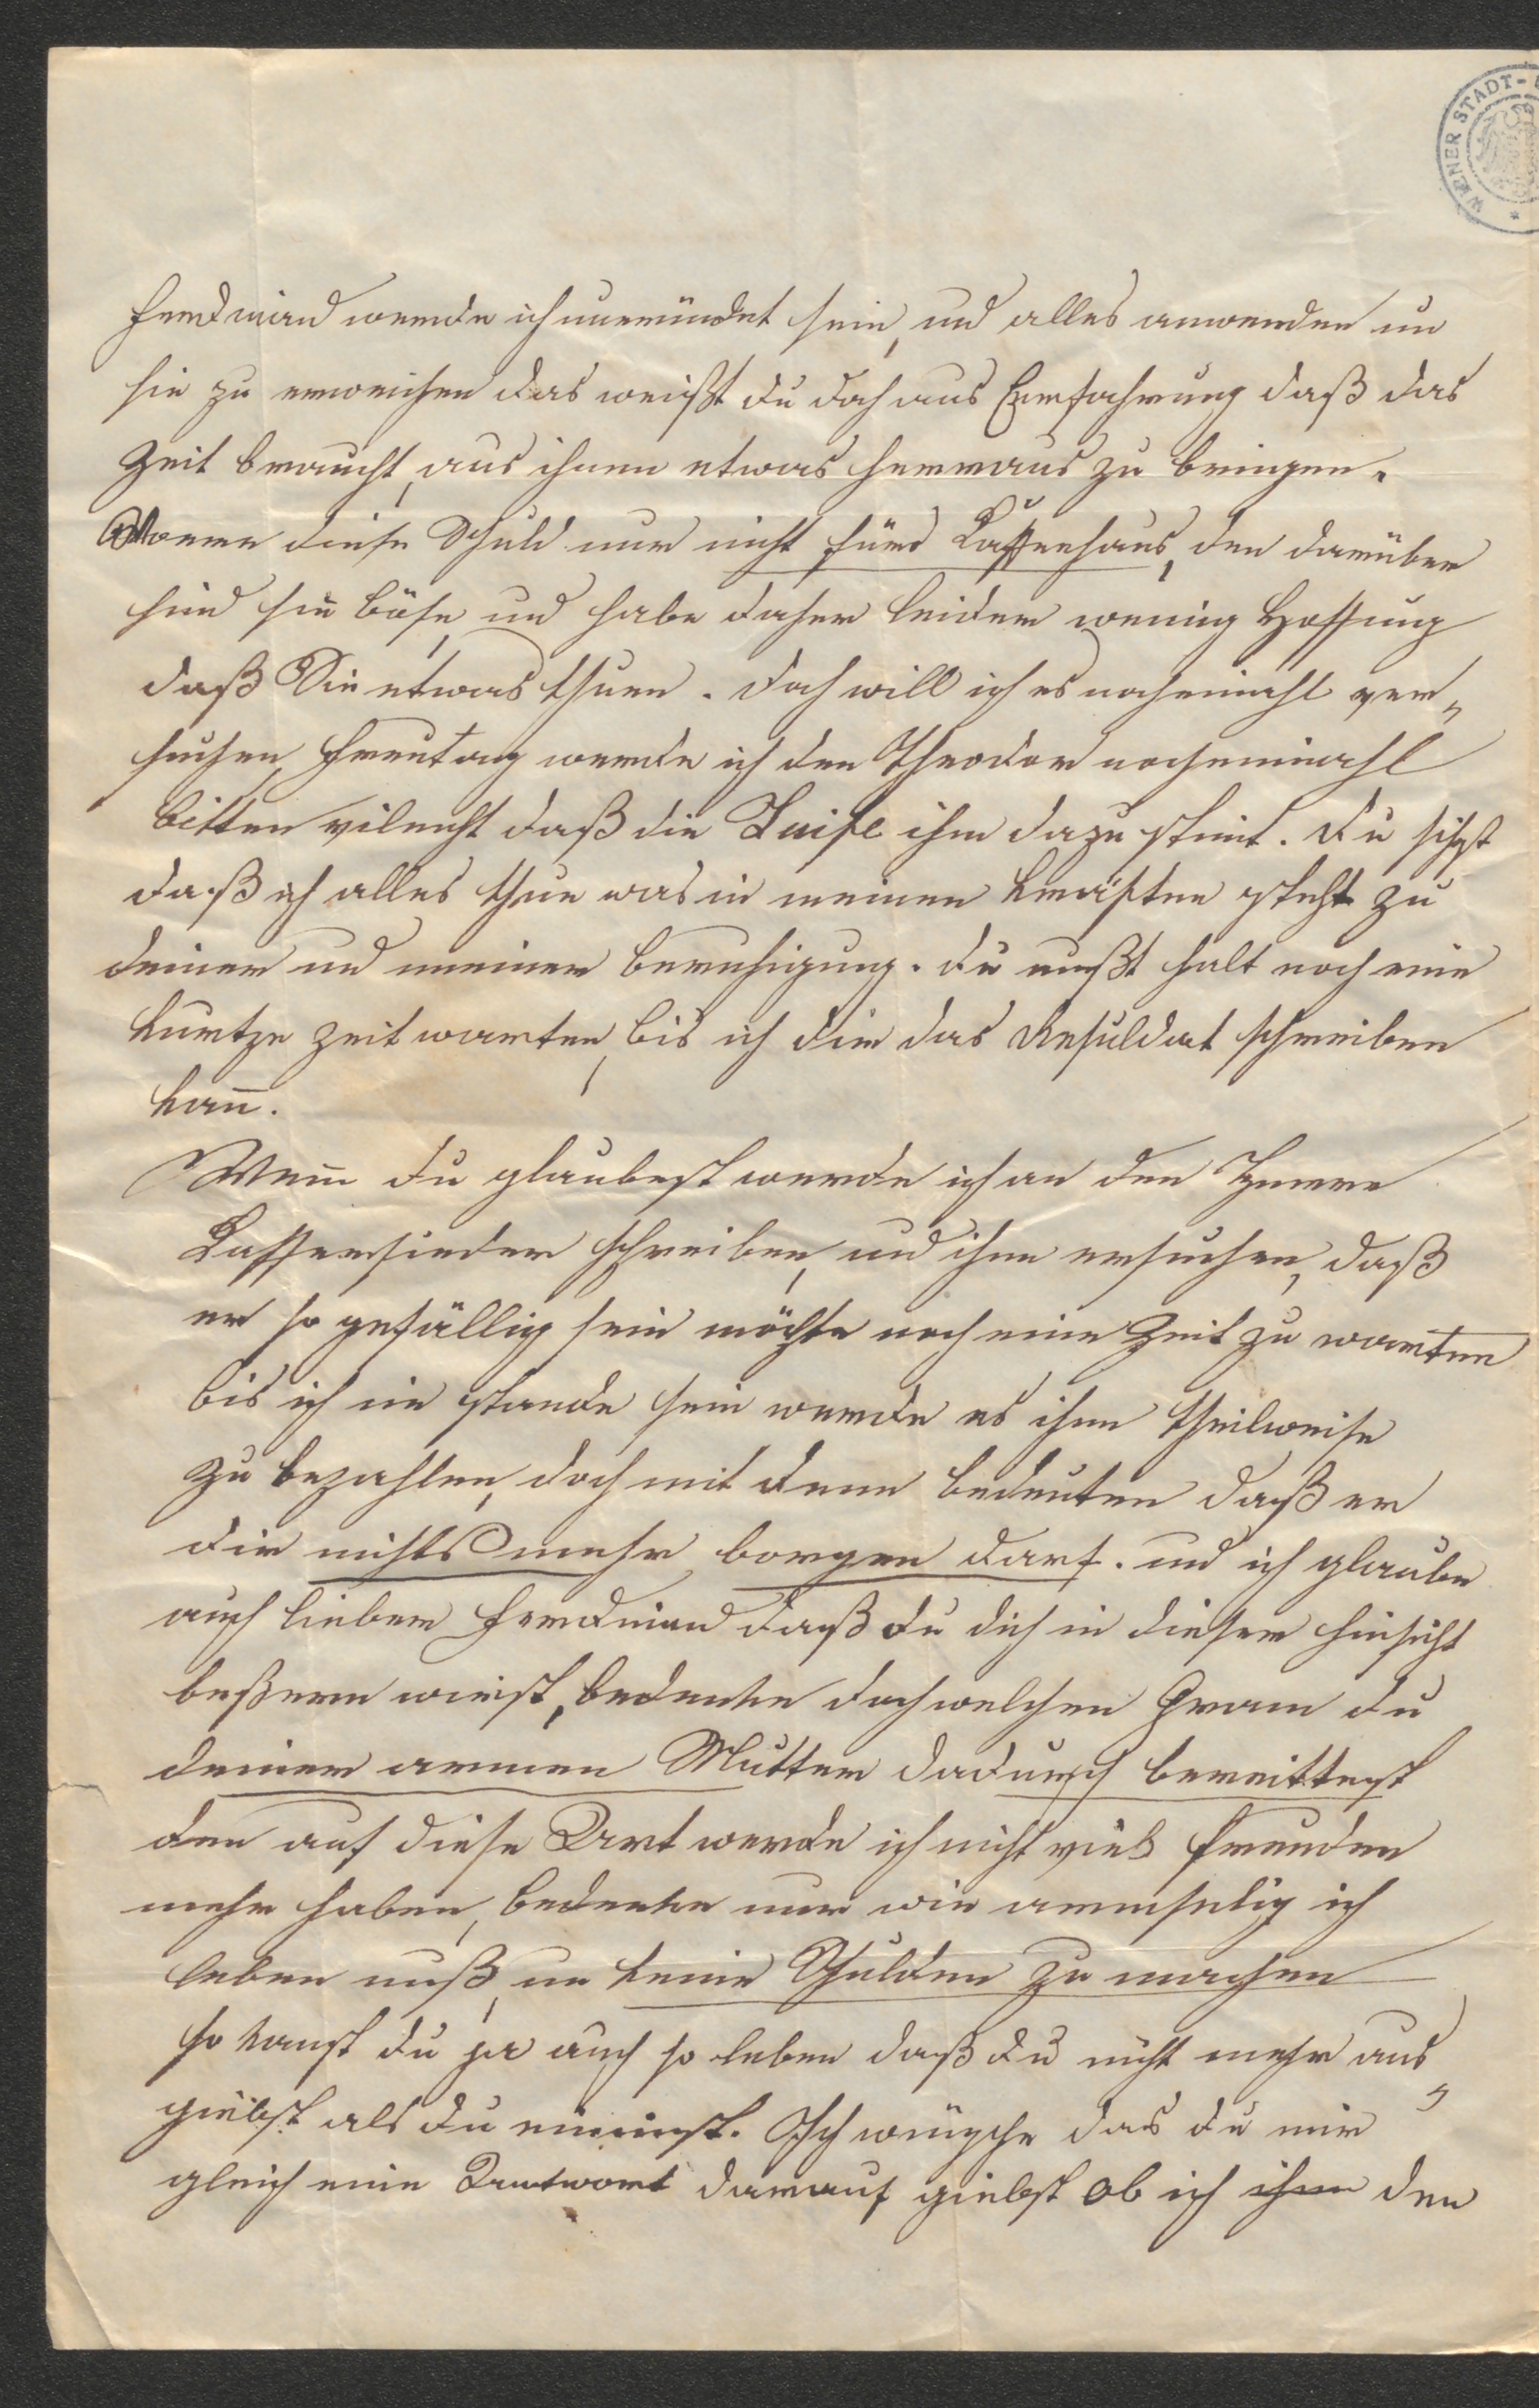 WIENER STADT-
Ferdinand werde ich unermüdet sein, und alles anwenden um
sie zu erweichen das weißt du doch aus Ermfahrung daß das
Zeit braucht, aus ihnen etwas herraus zu bringen.
Waere diese Schuld nur nicht fürs Kaffeehaus, den darüber
sind sie böse, und habe daher leider wennig Hoffnung
daß Sie etwas thuen. doch will ich es nocheinmahl ver„
suchen, Freutag werde ich den Theodor nocheinmahl
bitten vileicht daß die Luise ihm dazu stimt. du sihst
daß ich alles thue was in meinen Kräften steht zu
deiner und meiner Beruhigung. du mußt halt noch eine
kurtze Zeit warten, bis ich dir das Resuldat schreiben
kann̅.
Wenn̅ du glaubest werde ich an den Herrn
Kaffeesieder schreiben, und ihm ersuchen, daß
er so gefällig sein möchte noch eine Zeit zu warten
bis ich im stande sein werde es ihm theilweise
zu bezahlen, doch mit dem bedeuten daß er
dir nichts mehr borgen darf. und ich glaube
auch lieber Ferdinand daß du dich in dieser Hinsicht
beßern wirst, bedenke doch welchen Gram du
deiner armen Mutter dadurch bereittest
den auf diese Art werde ich nicht viel Freuden
mehr haben, bedenke nur wie armselig ich
leben muß, um keine Schulden zu machen
so kanst du ja auch so leben daß du nicht mehr aus„
giebst als du einimst. Ich wünsche das du mir
gleich eine Antwort darauf giebst ob ich ihm den